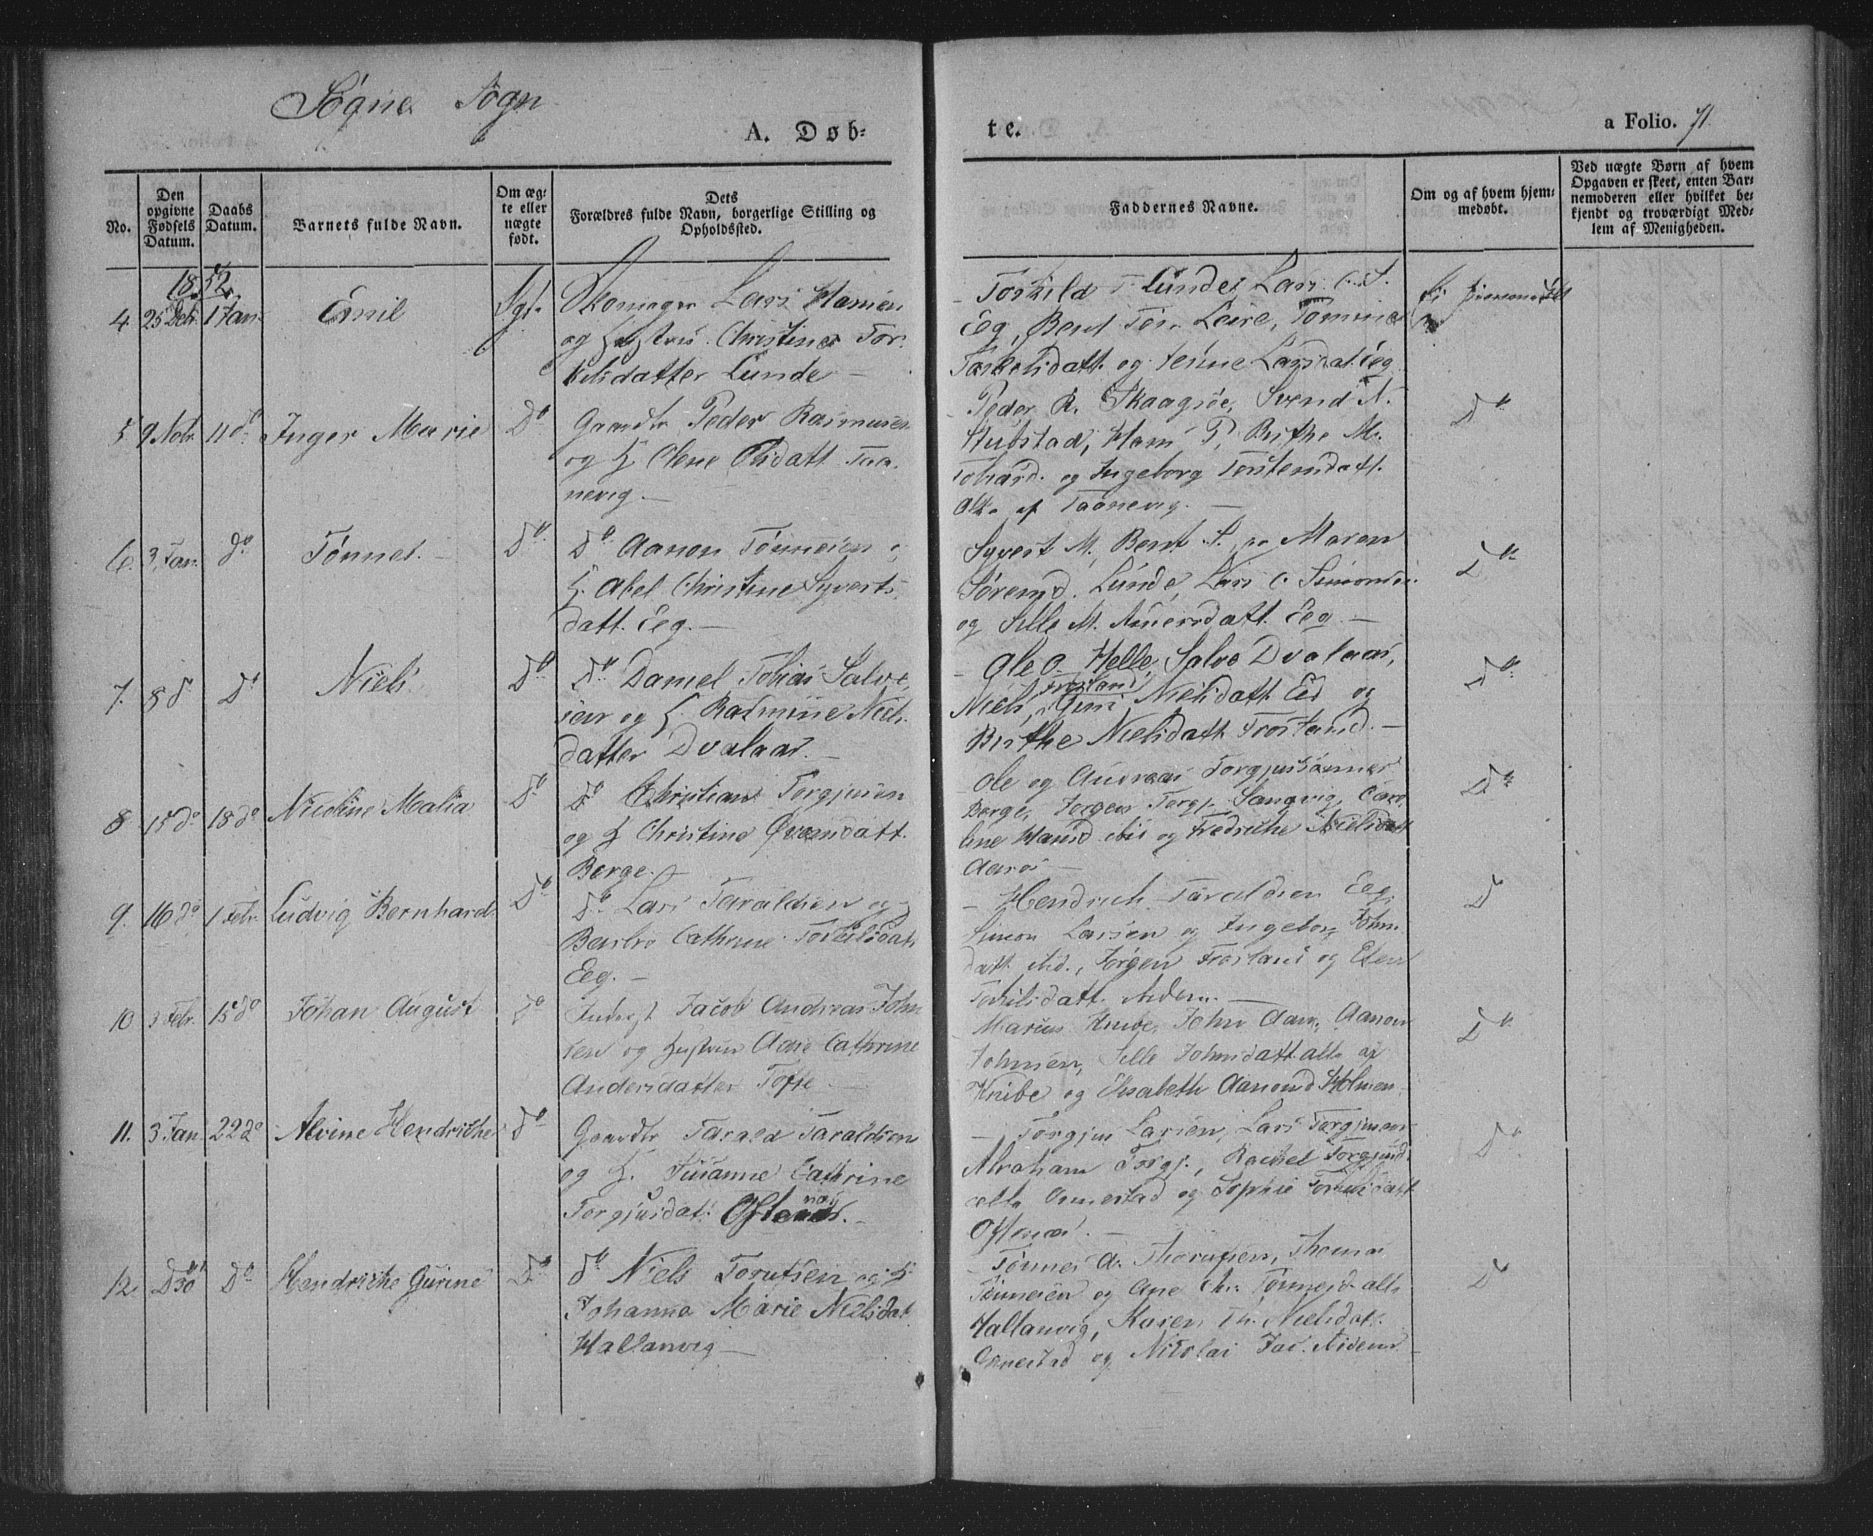 Søgne Sogn
A. Døb=
te.
a Folio. 71.
No.
Den opgivne Fødsels Datum.
Daabs Datum.
Barnets fulde Navn.
Om æg= te eller uægte født.
Dets
Forældres fulde Navn, borgerlige Stilling og
Opholdssted.
Faddernes Navne.
Om og af hvem hjem= medøbt.
Ved uægte Børn af hvem
Opgaven er skeet, enten Bar=
nemoderen eller hvilket be=
kjendt og troværdigt Med=
lem af Menigheden.
1852
4. 25 Jan. Emil
Skomager Lars Hansen
og Christine Tor
kelsdatter Lunde
Lunde, Lars O. S.
Eeg, Bernt Leire, Tomine
Larsdat Eeg
5 11 do Inger Marie Do
Gaardbr Peder Rasmusen
og H. Olene Olsdatt Taa
nevig
Peder R. Skaagsøe, Svend N.
Hubstad, Hans P. Birthe M.
og Ingeborg Torstensdatt.
alle af Taanevig.
Do
6. 3 Jan. do Tønnes. Do
Do Aanon Tønnesen og
H. Abel Christine Syverts
datt. Eeg.
Syvert M., Bernt S., og Maren
Sørensd. Lunde, Lars O. Simonsen
og Sille M. Asnersdatt. Eeg
Do
7. 8 d Do Niels Do
Do Daniel Tobias Salve
sen og H. Rasmine Niels
datter Dvalaas.
Ole O. Helle, Salve Dvalaas,
Frøsland
Niels, Guri Nielsdatt. Ed og
Birthe Nielsdatt Frøsland.
Do
8 15 do 18 do Nicoline Malia Do
Do Christian Torgjusen
og H Christine Svendsdatt.
Berge.
Ole og Andreas Torgjussønner
Berge, Jørgen Torgj. Sangvig, Caro
line Hansd. ibid og Fredrikke Nielsdatt
Aarøs
Do
9. 16 do 1 Febr. Ludvig Bernhard Do
Do Lars Taraldsen og
Cathrine Torkilsdatt
Eeg.
Hendrich Taraldsen Eeg,
Simon Larsen og Ingeborg John
datt ibid., Jørgen Frøsland og Elen
Torkilsdatt.
D
10 3 Febr. 15 do Johan August Do
Jacob Andreas John
sen og Hustru Aase Cathrine
Andersdatter Tofte
Marius Knibe, John Aan., Aanon
Johnsen, Sille Johnsdatt alle af
Knibe og Elisabeth Aanonsd Holmen
Do
11. 3 Jan 22 do Alvine Hendrikke Do
Gaardbr Tarald Taraldsen
og H. Susanne Cathrine
Torgjusdat. Oftenæs.
næs
Torgjus Larsen, Lars Torgjusen
Abraham Torgj., Rachel Torgjusd.
alle Omnestad og Sophie Torkilsdatt
Oftenæs.
Do
12. Do Hendrikke Gurine Do
do Niels Torutsen og H
Johanna Marie Nielsdat
Hallanvig
Tønnes A. Thorutsen, Thomas
Tønnesen og Ane Chr. Tønnesd. alle
Hallanvig, Karen Th. Nielsdat.
Omnestad og Nikolai Jac.
D